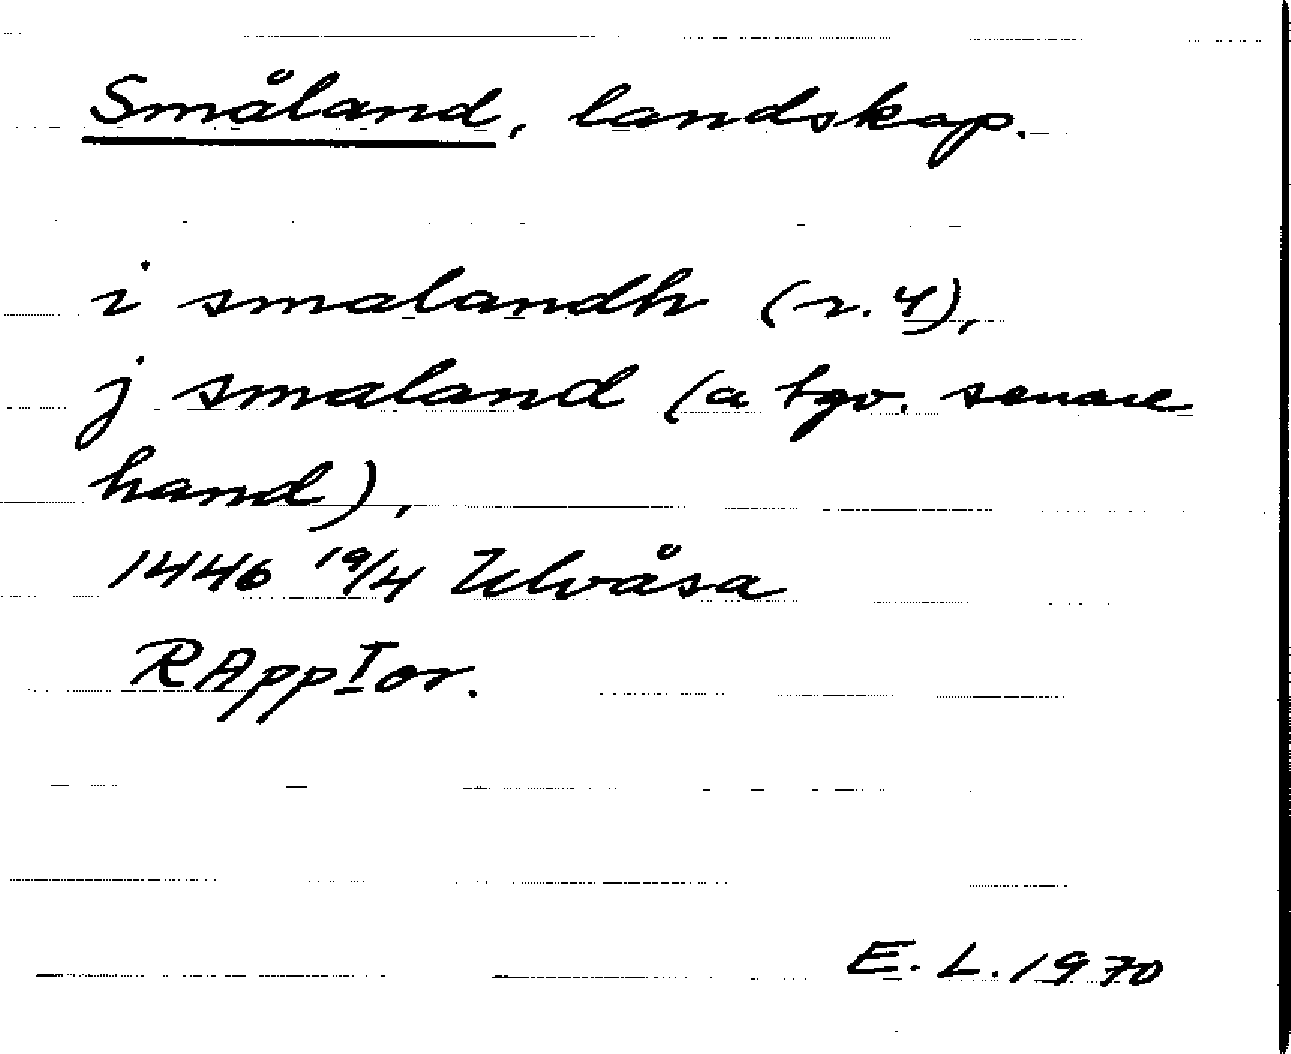 Småland, landskap.
i smalandh (r. 4),
j smaland (a tgo. senare
hand),
1446 19/4 Ulvåsa
RAppIor.
E. L. 1970